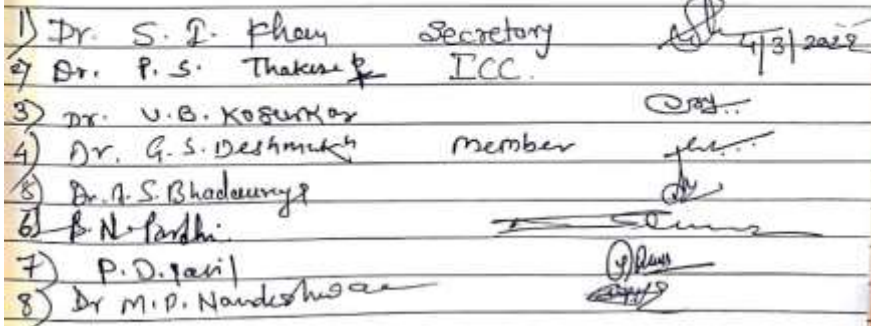 1) Dr. S. I. Khan Secretary 4/3/2022
2) Dr. P. S. Thakare ICC.
3) Dr. V. B. Kosurkar
4) Dr. G. S. Deshmukh member
5) Dr. A. S. Bhadaurya
6) B. N. Pardhi
7) P. D. Patil
8) Dr M. P. Nandeshwar